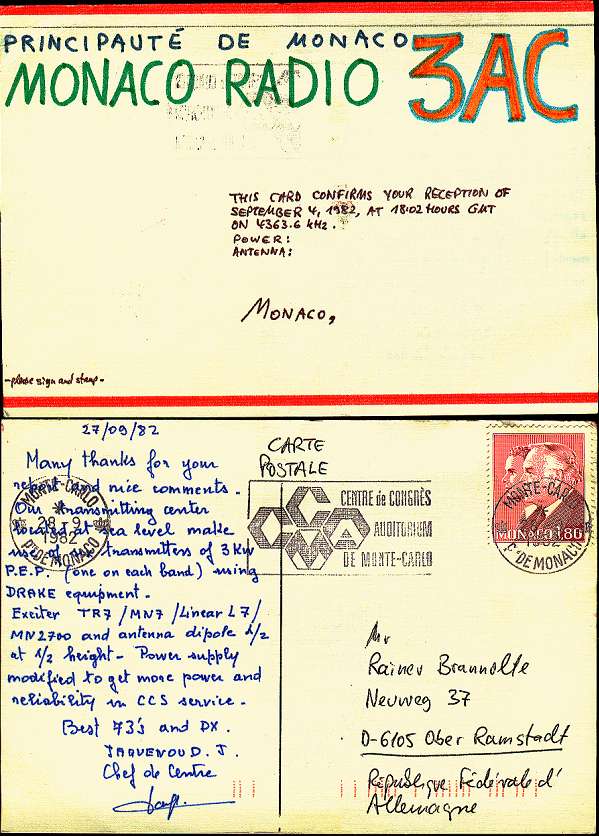 PRINCIPAUTÉ DE MONACO
MONACO RADIO 3AC
THIS CARD CONFIRMS YOUR RECEPTION OF
SEPTEMBER 4, 1982, AT 18:02 HOURS GMT
ON 4363.6 kHz.
POWER:
ANTENNA:
MONACO,
-please sign and stamp-
27/09/82
Many thanks for your
report and nice comments.
Our transmitting center
located at sea level make
use of transmitters of 3 kw
P.E.P. (one on each band) using
DRAKE equipment.
Exciter TR7/MN7/Linear L7/
MN2700 and antenna dipole λ/2
at λ/2 height - Power supply
modified to get more power and
reliability in CCS service.
Best 73's and DX.
JAQUENOUD. J.
Chef de Centre
MONTE-CARLO
28-9
1982
PTE DE MONACO
CARTE
POSTALE
CCAM
CENTRE de CONGRÈS
AUDITORIUM
DE MONTE-CARLO
MONACO 1,80
MONTE-CARLO
1982
PTE DE MONACO
Mr
Rainer Brannolte
Neuweg 37
D-6105 Ober Ramstadt
République Fédérale d'
Allemagne